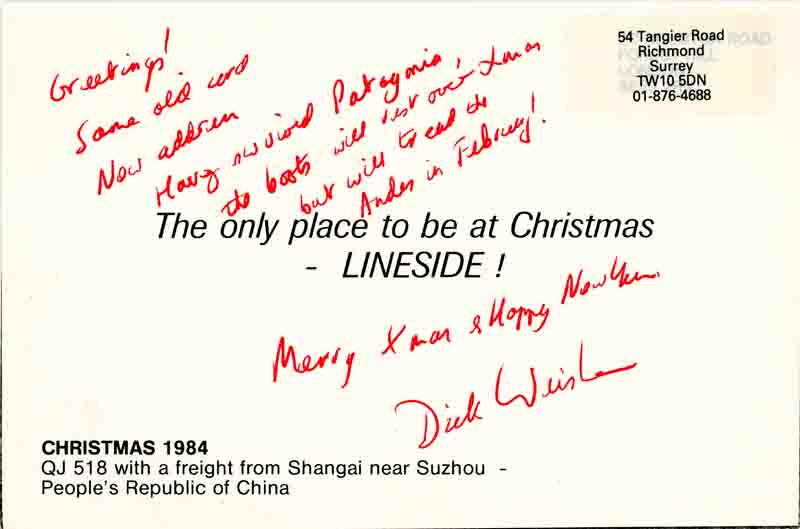 54 Tangier Road
Richmond
Surrey
TW10 5DN
01-876-4688
Greetings!
Same old card
New address
Having survived Patagonia,
the boots will rest over Xmas
but will tread the
Andes in February!
The only place to be at Christmas
- LINESIDE !
Merry Xmas & Happy New Year.
Dick
CHRISTMAS 1984
QJ 518 with a freight from Shangai near Suzhou -
People's Republic of China